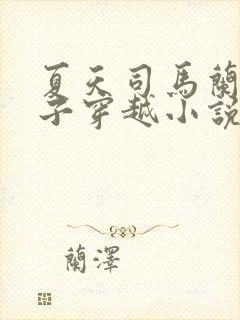 夏天司馬蘭
子穿越小說
蘭澤